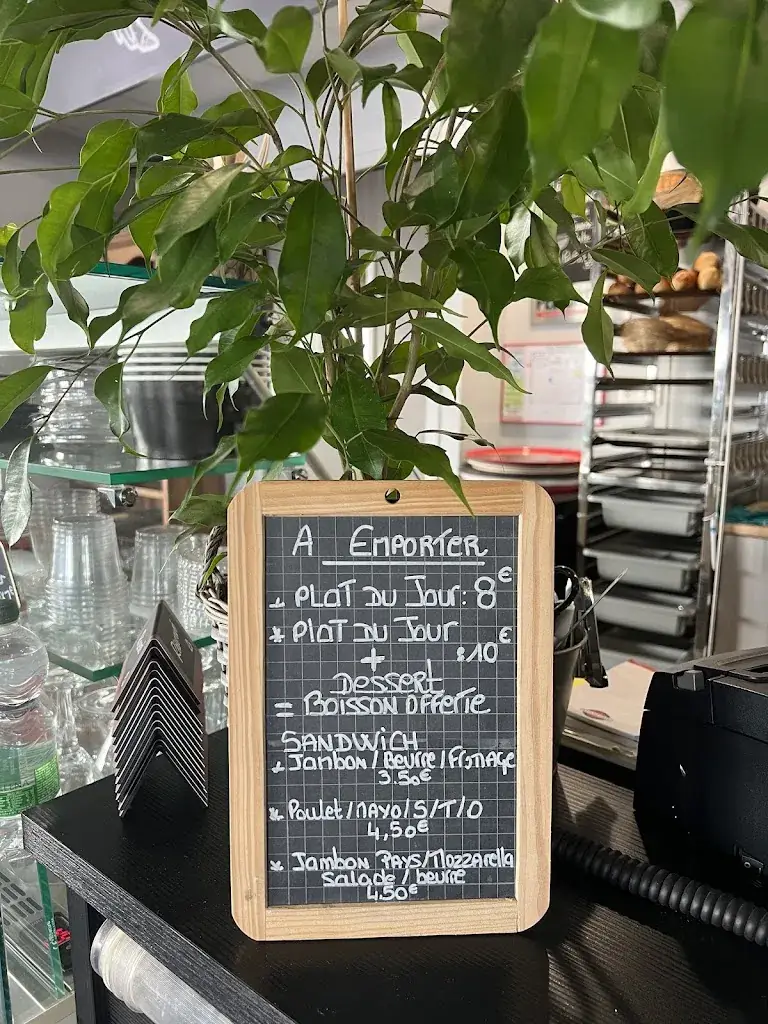 A EMPORTER
* PLAT DU JOUR: 8€
* PLAT DU JOUR
+ :10€
DESSERT
= BOISSON OFFERTE
SANDWICH
* Jambon/Beurre/Fromage
3.50€
* Poulet/MAYO/S/T/O
4,50€
* Jambon PAYS/MOZZArella
Salade/beurre
4.50€